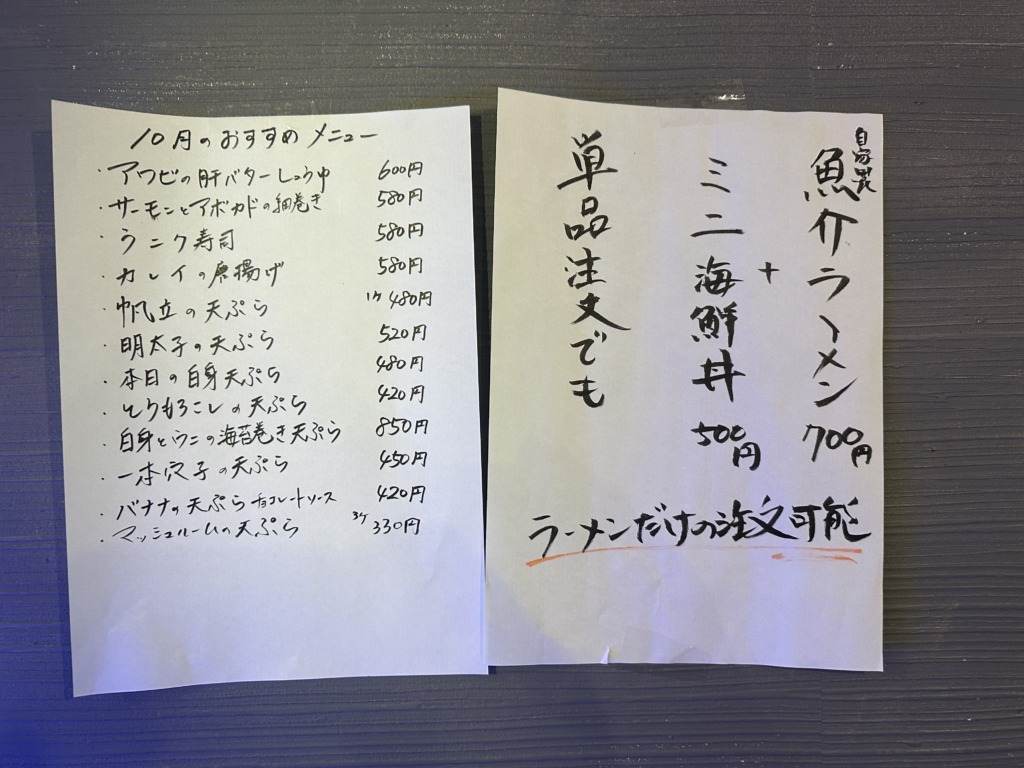 10月のおすすめメニュー
・アワビの肝バターしょうゆ 600円
・サーモンとアボカドの細巻き 580円
・ラニク寿司 580円
・カレイの唐揚げ 580円
・帆立の天ぷら 1ケ 480円
・明太子の天ぷら 520円
・本日の白身天ぷら 480円
・とうもろこしの天ぷら 420円
・白身とウニの海苔巻き天ぷら 850円
・一本穴子の天ぷら 450円
・バナナの天ぷらチョコレートソース 420円
・マッシュルームの天ぷら 3ケ 330円
自家製
魚介ラーメン 700円
+
ミニ海鮮丼 500円
単品注文でも
ラーメンだけの注文可能